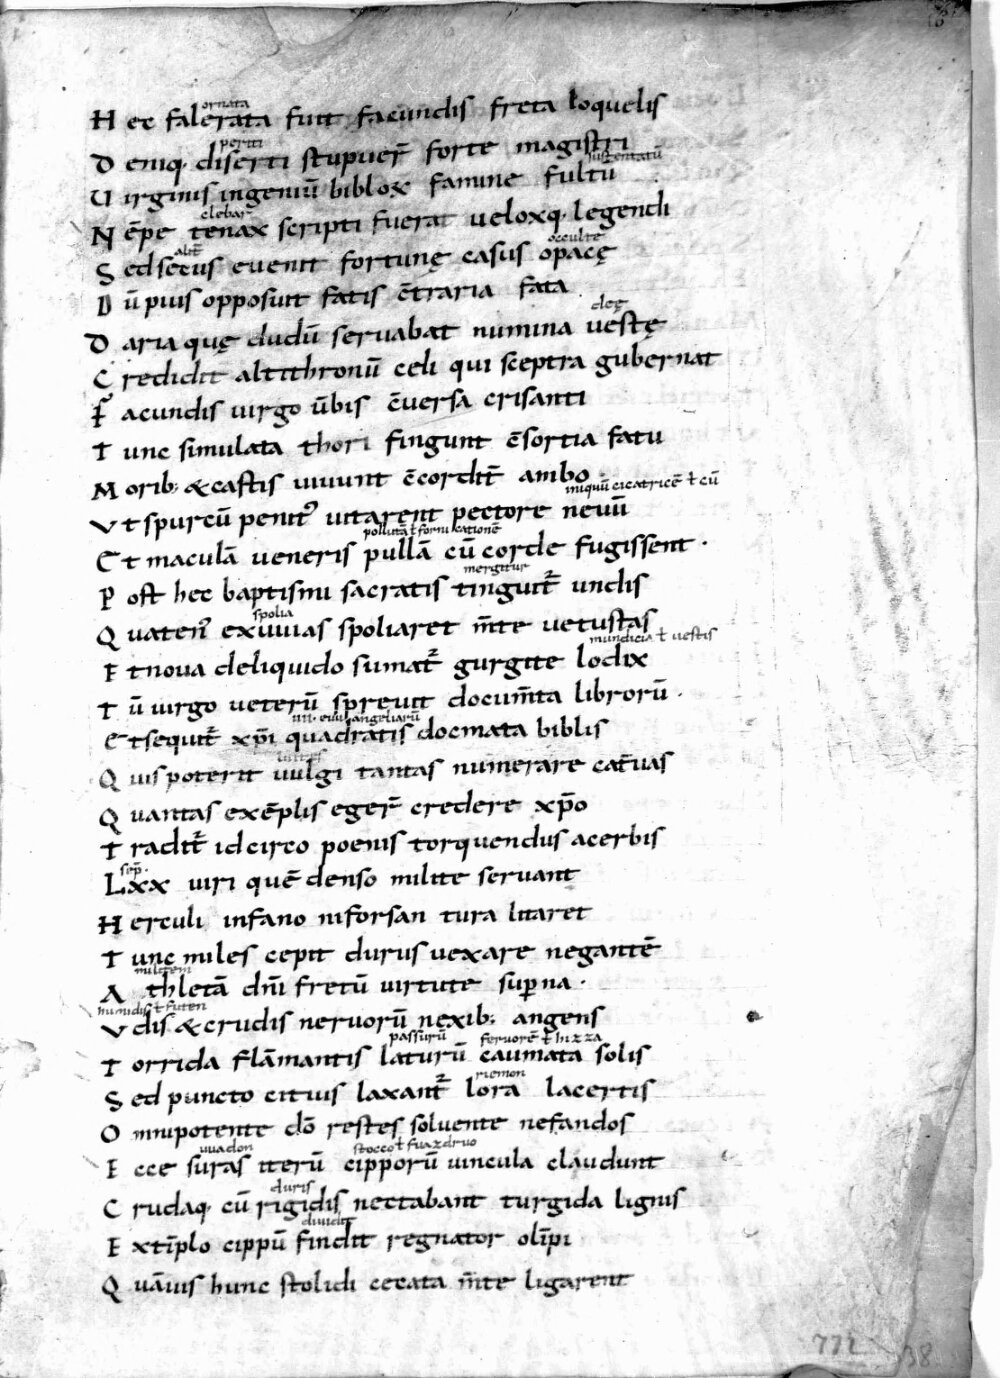 ornata
H ec falerata fuit facundis freta loquelis
periti
D eniq. diserti stupuer̄ forte magistri
sustentatū
U irginis ingeniū biblox famine fultū
clebar
N ēpe tenax scripti fuerat ueloxq. legendi
alit̄ occulte
S ed secus euenit fortunę casus opacę
D ū pius opposuit fatis c̄traria fata
deę
D aria quę dudū seruabat numina uestę
C redidit altithronū celi qui sceptra gubernat
F acundis uirgo ūbis c̄uersa crisanti
T unc simulata thori fingunt c̄sortia fatu
M orib; & castis uiuunt c̄cordit̄ ambo
iniquū cicatricē ł cū
V t spurcū penit᾽ uitarent pectore neuū
pollutā ł fornicationē
E t maculā ueneris pullā cū corde fugissent ·
mergitur
P ost hec baptismi sacratis tinguit᷑ undis
spolia
Q uaten᾽ exuuias spoliaret m̄te uetustas
mundicia ł uestis
E t noua deliquido sumat᷑ gurgite lodix
T ū uirgo ueterū spreuit docum̄ta librorū ·
iiii · euuangeliarū
E t sequit᷑ xp̄i quadratis docmata biblis
Q uis poterit uulgi tantas numerare cat̄uas
Q uantas exēplis eger̄ credere xp̄o
T radit᷑ idcirco poenis torquendus acerbis
sep̄.
Lxx uiri quē denso milite seruant
H erculi infano niforsan tura litaret
T unc miles cepit durus uexare negantē
militem
A thletā dn̄i fretū uirtute sup̱na ·
humidis ł futen
V dis & crudis neruorū nexib; angens
passurū feruorē ł hizza
T orrida flām̄antis laturū caumata solis
riemon
S ed puncto citius laxant᷑ lora lacertis
O mnipotente dō restes soluente nefandos
uuadon stocco ł fuazdruo
E cce suras iterū cipporū uincula claudunt
duris
C rudaq. cū rigidis nectabant turgida lignis
diuidit
E xtīplo cippū findit regnator olīpi
Q uāuis hunc stolidi cecata m̄te ligarent
772
38